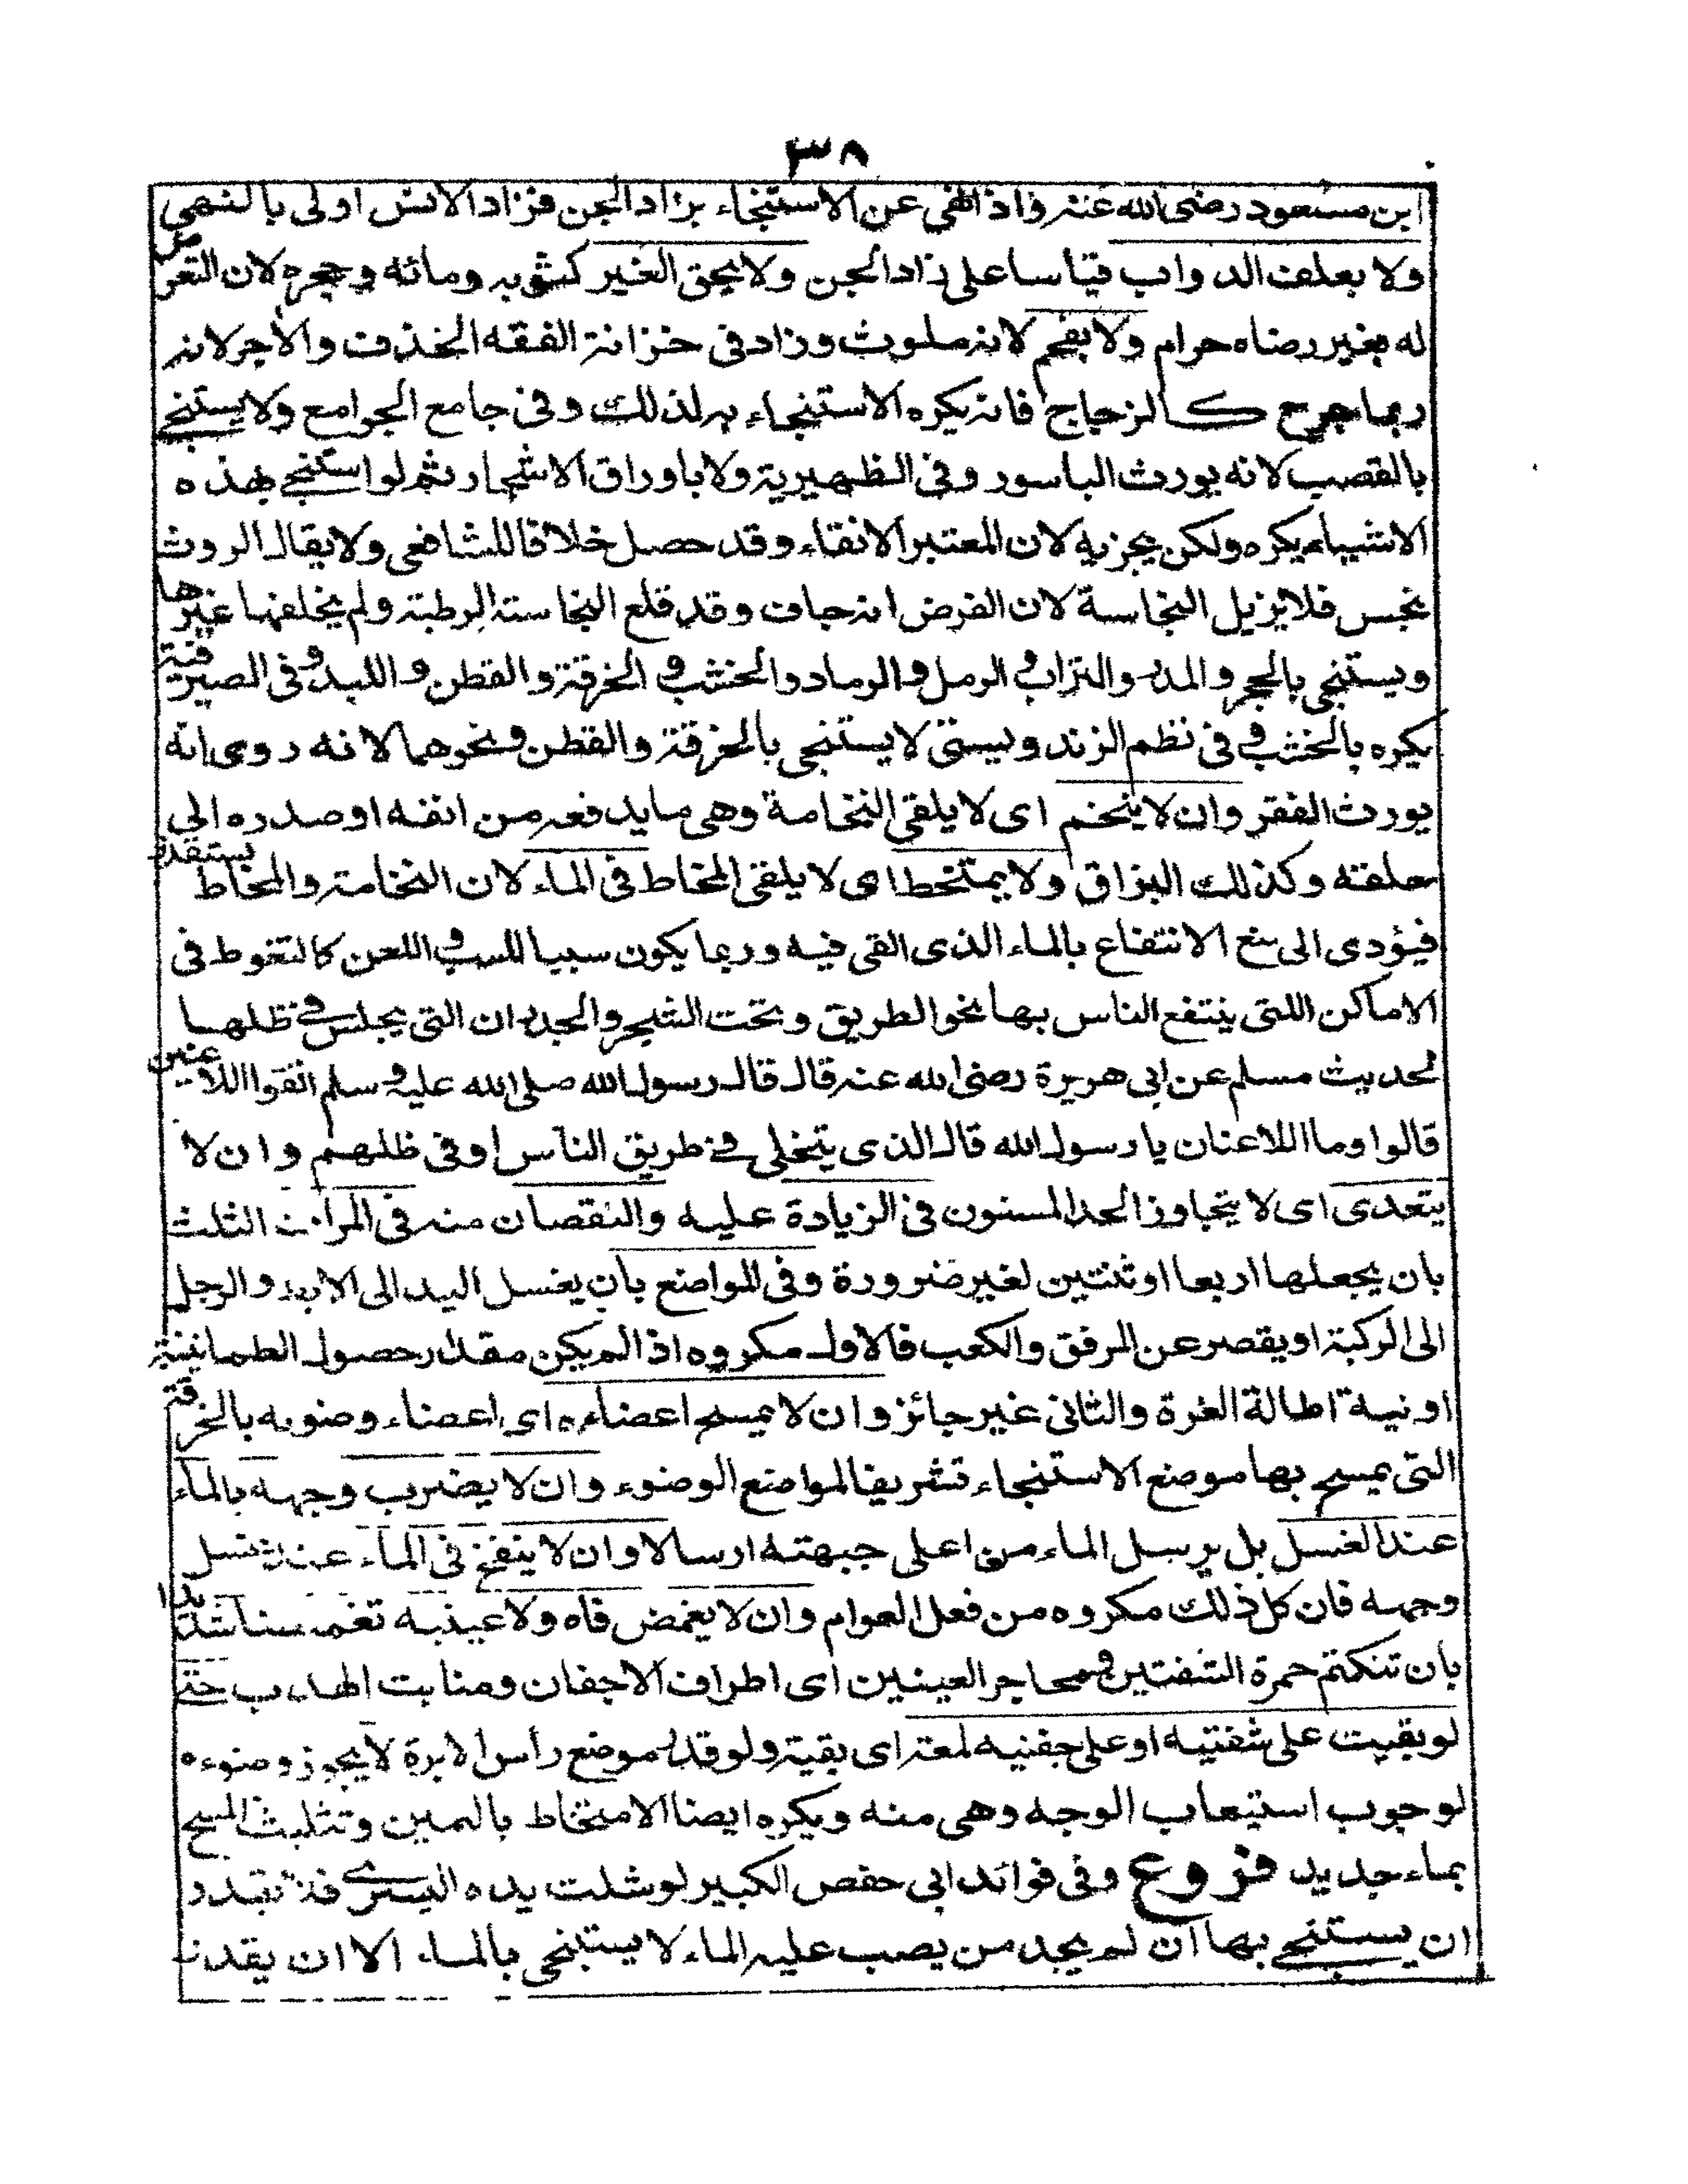 ٣٨
ابن مسعود رضى الله عنه واذا نهى عن الاستنجاء بزاد الجن فزاد الانس اولى بالنهى
ولا بعلف الدواب قياسا على زاد الجن ولا بحق الغير كثوبه ومائه وحجره لان التعرض
له بغير رضاه حرام ولا بفحم لانه ملوث وزاد فى خزانة الفقه الخذف والآجر لانه
ربما جرح كالزجاج فانه يكره الاستنجاء به لذلك وفى جامع الجوامع ولا يستنجى
بالقصب لانه يورث الباسور وفى الظهيرية ولا باوراق الاشجار ثم لو استنجى بهذه
الاشياء يكره ولكن يجزيه لان المعتبر الانقاء وقد حصل خلافا للشافعى ولا يقال الروث
نجس فلا يزيل النجاسة لان الفرض انه جاف وقد قلع النجاسة الرطبة ولم يخلفها غيرها
ويستنجى بالحجر والمدر والتراب والرمل والرماد والخشب والخرقة والقطن واللبد وفى الصيرفية
يكره بالخشب وفى نظم الزندويستى لا يستنجى بالخرقة والقطن ونحوهما لانه روى انه
يورث الفقر وان لا يتنخم اى لا يلقى النخامة وهى ما يدفعه من انفه او صدره الى
حلقه وكذلك البزاق ولا يمتخط اى لا يلقى المخاط فى الماء لان النخامة والمخاط يستقذر
فيؤدى الى منع الانتفاع بالماء الذى القى فيه وربما يكون سببا للسب واللعن كالتغوط فى
الاماكن اللتى ينتفع الناس بها نحو الطريق وتحت الشجر والجدران التى يجلس فى ظلها
لحديث مسلم عن ابى هريرة رضى الله عنه قال قال رسول الله صلى الله عليه وسلم اتقوا اللاعنين
قالوا وما اللاعنان يا رسول الله قال الذى يتخلى فى طريق الناس او فى ظلهم وان لا
يتعدى اى لا يتجاوز الحد المسنون فى الزيادة عليه والنقصان منه فى المرات الثلث
بان يجعلها اربعا او ثنتين لغير ضرورة وفى المواضع بان يغسل اليد الى الابط والرجل
الى الركبة او يقصر عن المرفق والكعب فالاول مكروه اذا لم يكن مقدار حصول الطمانينة
او نية اطالة الغرة والثانى غير جائز وان لا يمسح اعضاءه اى اعضاء وضوبه بالخرقة
التى يمسح بها موضع الاستنجاء تشريفا لمواضع الوضوء وان لا يضرب وجهه بالماء
عند الغسل بل يرسل الماء من اعلى جبهته ارسالا وان لا ينفخ فى الماء عند غسل
وجهه فان كل ذلك مكروه من فعل العوام وان لا يغمض فاه ولا عينيه تغميضا شديدا
بان تنكتم حمرة الشفتين ومحاجر العينين اى اطراف الاجفان ومنابت الهدب حتى
لو بقيت على شفتيه او على جفنيه لمعة اى بقية ولو قدر موضع رأس الابرة لا يجوز وضوءه
لوجوب استيعاب الوجه وهى منه ويكره ايضا الامتخاط باليمين وتثليث المسح
بماء جديد فروع وفى فوائد ابى حفص الكبير لو شلت يده اليسرى فلا تقدر
ان يستنجى بها ان لم يجد من يصب عليه الماء لا يستنجى بالماء الا ان يقدر